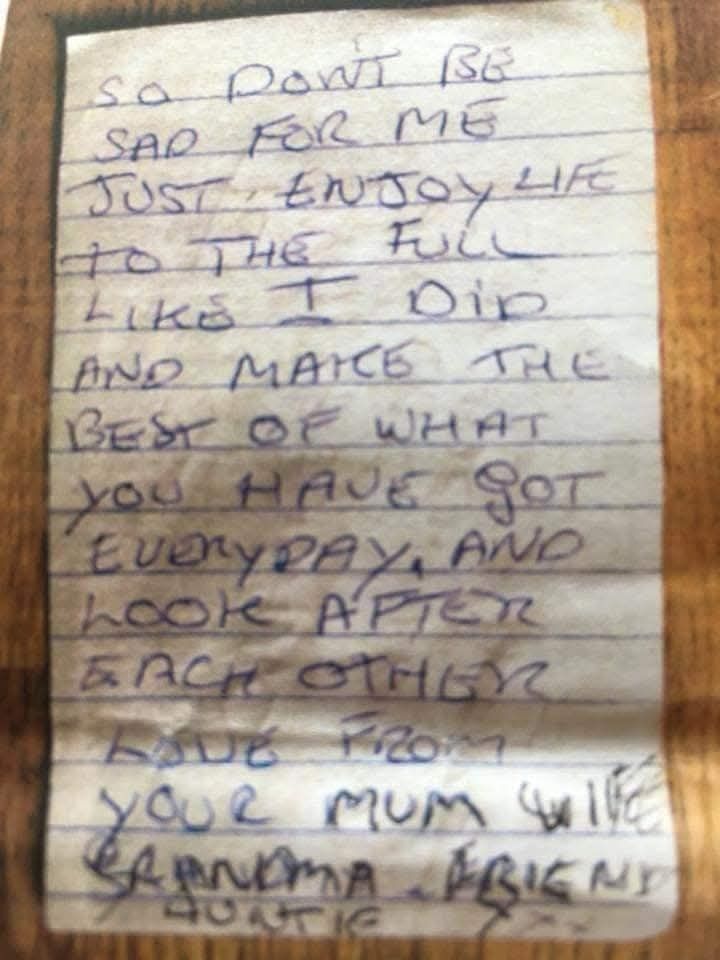 SO DON'T BE
SAD FOR ME
JUST ENJOY LIFE
TO THE FULL
LIKE I DiD
AND MAKE THE
BEST OF WHAT
YOU HAVE GOT
EVERYDAY, AND
LOOK AFTER
EACH OTHER
LOVE FROM
YOUR MUM WIFE
GRANDMA. FRIEND
AUNTIE XXX